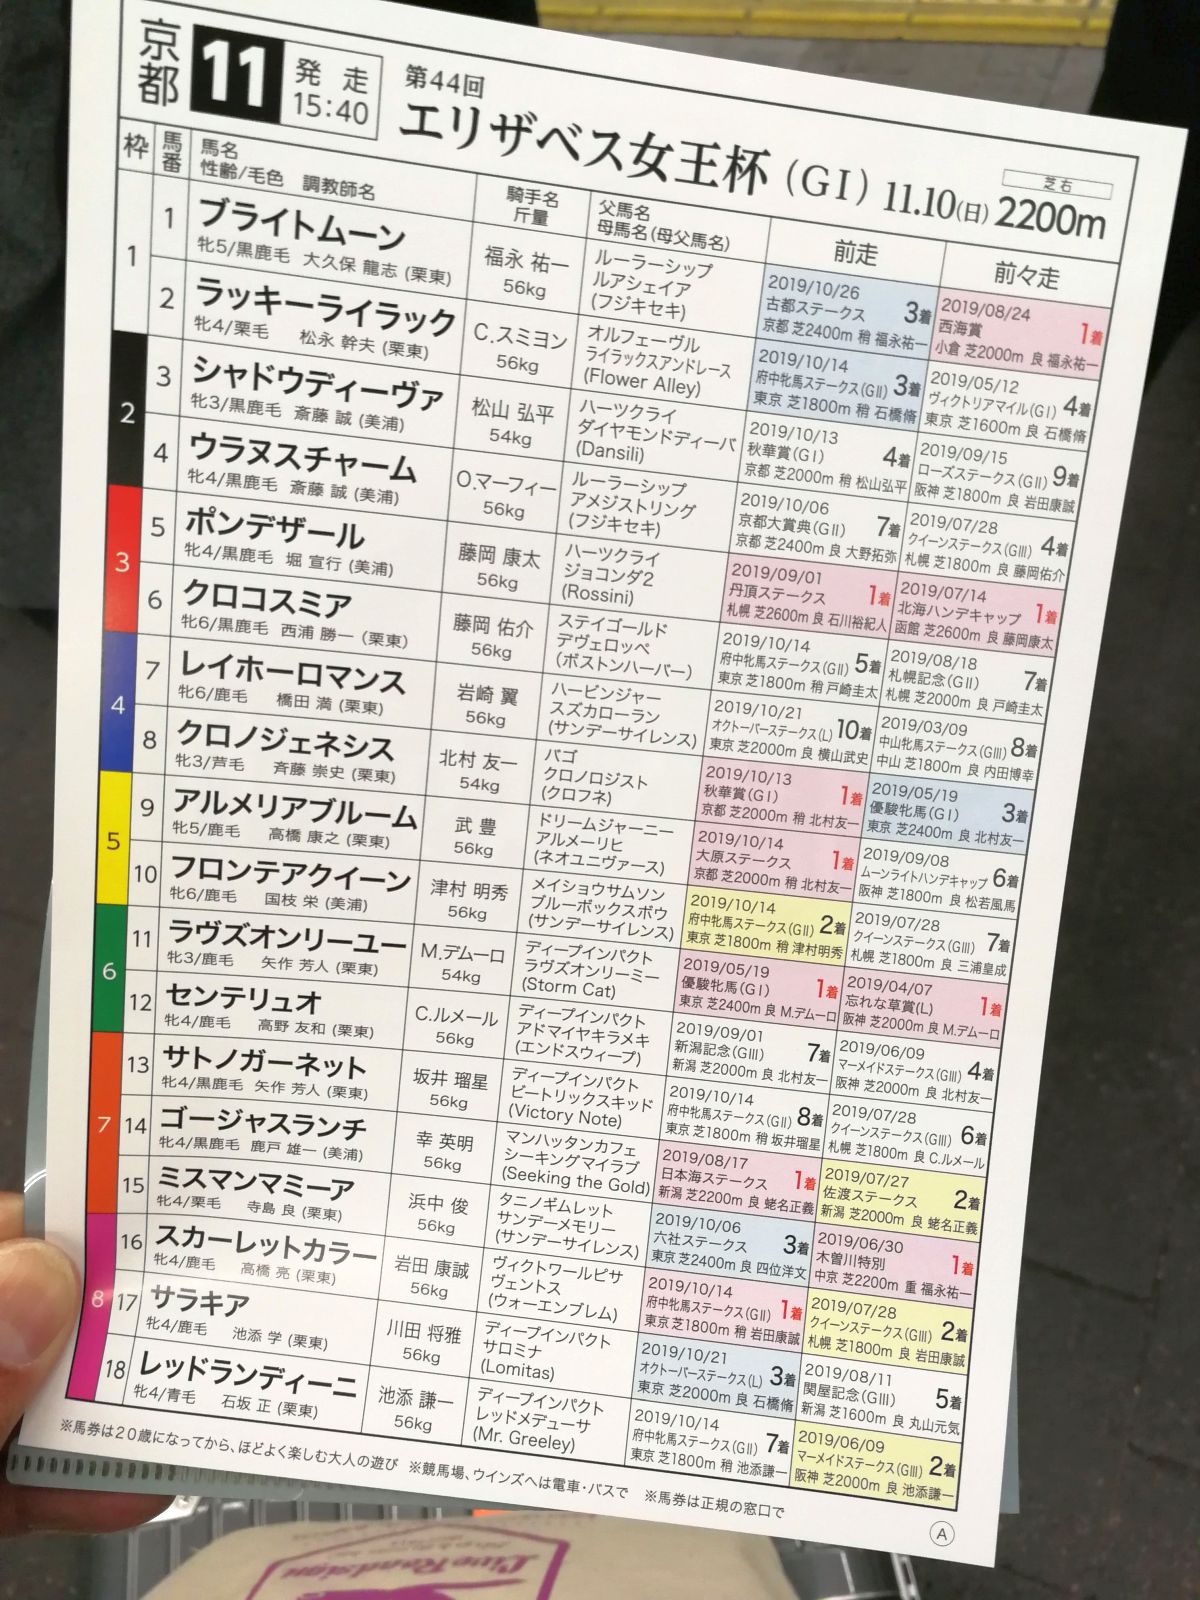 京都
11
発走
15:40
第44回
エリザベス女王杯(GI) 11.10(日) 2200m
芝右
枠 馬番 馬名 騎手名 父馬名 前走 前々走
性齢/毛色 調教師名 斤量 母馬名(母父馬名)
1
1 ブライトムーン
牝5/黒鹿毛 大久保 龍志 (栗東)
福永 祐一
56kg
ルーラーシップ
ルアシェイア
(フジキセキ)
2019/10/26
古都ステークス 3着
京都 芝2400m 稍 福永祐一
2019/08/24
西海賞 1着
小倉 芝2000m 良 福永祐一
2 ラッキーライラック
牝4/栗毛 松永 幹夫 (栗東)
C.スミヨン
56kg
オルフェーヴル
ライラックスアンドレース
(Flower Alley)
2019/10/14
府中牝馬ステークス(GII) 3着
東京 芝1800m 稍 石橋脩
2019/05/12
ヴィクトリアマイル(GI) 4着
東京 芝1600m 良 石橋脩
2
3 シャドウディーヴァ
牝3/黒鹿毛 斎藤 誠 (美浦)
松山 弘平
54kg
ハーツクライ
ダイヤモンドディーバ
(Dansili)
2019/10/13
秋華賞(GI) 4着
京都 芝2000m 稍 松山弘平
2019/09/15
ローズステークス(GII) 9着
阪神 芝1800m 良 岩田康誠
4 ウラヌスチャーム
牝4/黒鹿毛 斎藤 誠 (美浦)
O.マーフィー
56kg
ルーラーシップ
アメジストリング
(フジキセキ)
2019/10/06
京都大賞典(GII) 7着
京都 芝2400m 良 大野拓弥
2019/07/28
クイーンステークス(GIII) 4着
札幌 芝1800m 良 藤岡佑介
3
5 ポンデザール
牝4/黒鹿毛 堀 宣行 (美浦)
藤岡 康太
56kg
ハーツクライ
ジョコンダ2
(Rossini)
2019/09/01
丹頂ステークス 1着
札幌 芝2600m 良 石川裕紀人
2019/07/14
北海ハンデキャップ 1着
函館 芝2600m 良 藤岡康太
6 クロコスミア
牝6/黒鹿毛 西浦 勝一 (栗東)
藤岡 佑介
56kg
ステイゴールド
デヴェロッペ
(ボストンハーバー)
2019/10/14
府中牝馬ステークス(GII) 5着
東京 芝1800m 稍 戸崎圭太
2019/08/18
札幌記念(GII) 7着
札幌 芝2000m 良 戸崎圭太
4
7 レイホーロマンス
牝6/鹿毛 橋田 満 (栗東)
岩崎 翼
56kg
ハービンジャー
スズカローラン
(サンデーサイレンス)
2019/10/21
オクトーバーステークス(L) 10着
東京 芝2000m 良 横山武史
2019/03/09
中山牝馬ステークス(GIII) 8着
中山 芝1800m 良 内田博幸
8 クロノジェネシス
牝3/芦毛 斉藤 崇史 (栗東)
北村 友一
54kg
バゴ
クロノロジスト
(クロフネ)
2019/10/13
秋華賞(GI) 1着
京都 芝2000m 稍 北村友一
2019/05/19
優駿牝馬(GI) 3着
東京 芝2400m 良 北村友一
5
9 アルメリアブルーム
牝5/鹿毛 高橋 康之 (栗東)
武 豊
56kg
ドリームジャーニー
アルメーリヒ
(ネオユニヴァース)
2019/10/14
大原ステークス 1着
京都 芝2000m 稍 北村友一
2019/09/08
ムーンライトハンデキャップ 6着
阪神 芝1800m 良 松若風馬
10 フロンテアクイーン
牝6/鹿毛 国枝 栄 (美浦)
津村 明秀
56kg
メイショウサムソン
ブルーボックスボウ
(サンデーサイレンス)
2019/10/14
府中牝馬ステークス(GII) 2着
東京 芝1800m 稍 津村明秀
2019/07/28
クイーンステークス(GIII) 7着
札幌 芝1800m 良 三浦皇成
6
11 ラヴズオンリーユー
牝3/鹿毛 矢作 芳人 (栗東)
M.デムーロ
54kg
ディープインパクト
ラヴズオンリーミー
(Storm Cat)
2019/05/19
優駿牝馬(GI) 1着
東京 芝2400m 良 M.デムーロ
2019/04/07
忘れな草賞(L) 1着
阪神 芝2000m 良 M.デムーロ
12 センテリュオ
牝4/鹿毛 高野 友和 (栗東)
C.ルメール
56kg
ディープインパクト
アドマイヤキラメキ
(エンドスウィープ)
2019/09/01
新潟記念(GIII) 7着
新潟 芝2000m 良 北村友一
2019/06/09
マーメイドステークス(GIII) 4着
阪神 芝2000m 良 北村友一
7
13 サトノガーネット
牝4/黒鹿毛 矢作 芳人 (栗東)
坂井 瑠星
56kg
ディープインパクト
ビートリックスキッド
(Victory Note)
2019/10/14
府中牝馬ステークス(GII) 8着
東京 芝1800m 稍 坂井瑠星
2019/07/28
クイーンステークス(GIII) 6着
札幌 芝1800m 良 C.ルメール
14 ゴージャスランチ
牝4/黒鹿毛 鹿戸 雄一 (美浦)
幸 英明
56kg
マンハッタンカフェ
シーキングマイラブ
(Seeking the Gold)
2019/08/17
日本海ステークス 1着
新潟 芝2200m 良 蛯名正義
2019/07/27
佐渡ステークス 2着
新潟 芝2000m 良 蛯名正義
15 ミスマンマミーア
牝4/栗毛 寺島 良 (栗東)
浜中 俊
56kg
タニノギムレット
サンデーメモリー
(サンデーサイレンス)
2019/10/06
六社ステークス 3着
東京 芝2400m 良 四位洋文
2019/06/30
木曽川特別 1着
中京 芝2200m 重 福永祐一
8
16 スカーレットカラー
牝4/鹿毛 高橋 亮 (栗東)
岩田 康誠
56kg
ヴィクトワールピサ
ヴェントス
(ウォーエンブレム)
2019/10/14
府中牝馬ステークス(GII) 1着
東京 芝1800m 稍 岩田康誠
2019/07/28
クイーンステークス(GIII) 2着
札幌 芝1800m 良 岩田康誠
17 サラキア
牝4/鹿毛 池添 学 (栗東)
川田 将雅
56kg
ディープインパクト
サロミナ
(Lomitas)
2019/10/21
オクトーバーステークス(L) 3着
東京 芝2000m 良 石橋脩
2019/08/11
関屋記念(GIII) 5着
新潟 芝1600m 良 丸山元気
18 レッドランディーニ
牝4/青毛 石坂 正 (栗東)
池添 謙一
56kg
ディープインパクト
レッドメデューサ
(Mr. Greeley)
2019/10/14
府中牝馬ステークス(GII) 7着
東京 芝1800m 稍 池添謙一
2019/06/09
マーメイドステークス(GIII) 2着
阪神 芝2000m 良 池添謙一
※馬券は20歳になってから、ほどよく楽しむ大人の遊び ※競馬場、ウインズへは電車・バスで ※馬券は正規の窓口で
A